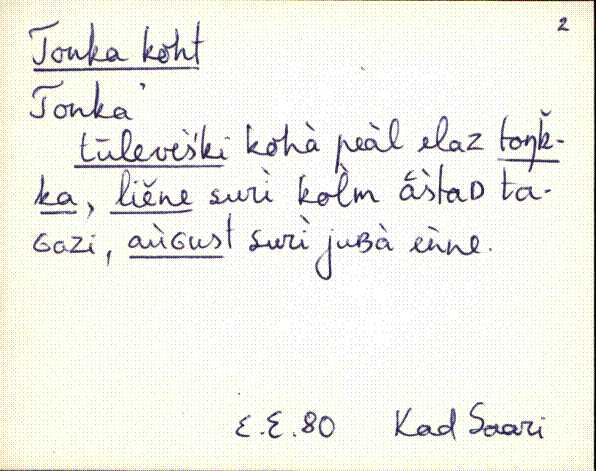 2
Tonka koht
Tonka'
tūleveški kohà peàl elaz toŋk̆-
ka, liĕne suri kolm āstaD ta-
Gazi, aùGust suri juBà eǹne.
E.E.80 Kad Saari